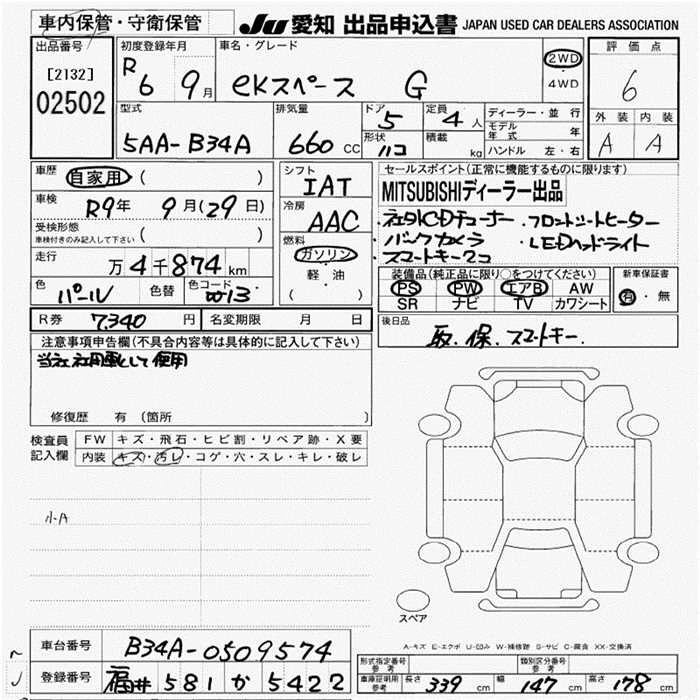 車内保管・守衛保管 JU 愛知 出品申込書 JAPAN USED CAR DEALERS ASSOCIATION
出品番号 [2132] 02502
初度登録年月 R6 9月
車名・グレード ekスペース G
2WD・4WD
評価点 6
外装 A 内装 A
型式 5AA-B34A
排気量 660 cc
ドア 5 形状 ハコ
定員 4人 積載 kg
ディーラー・並行
モデル年式 年
ハンドル 左・右
車歴 自家用 ( )
車検 R9年 9月(29日)
受検形態 ( )
車検付きのみ記入して下さい
走行 万4千874km
色 パール 色替 色コード W13
シフト IAT
冷房 AAC
燃料 ガソリン・軽油 ( )
セールスポイント(正常に機能するものに限ります)
MITSUBISHIディーラー出品
・社外CDチューナー ・フロントシートヒーター
・バックカメラ ・LEDヘッドライト
・スマートキー2コ
装備品(純正品に限り○をつけてください)
PS PW エアB AW
SR ナビ TV カワシート
新車保証書 有・無
R券 7,340円 名変期限 月 日
後日品 取.保.スマートキー.
注意事項申告欄(不具合内容等は具体的に記入して下さい)
当社社用車として使用
修復歴 有 (箇所 )
検査員記入欄
FW キズ・飛石・ヒビ割・リペア跡・X要
内装 キズ・汚レ・コゲ・穴・スレ・キレ・破レ
小A
スペア
A-キズ E-エクボ U-凹み W-補修跡 S-サビ C-腐食 XX-交換済
車台番号 B34A-0509574
登録番号 福井 581 か 5422
形式指定番号 参考 類別区分番号 参考
車庫証明用 参考 長さ 339 cm 幅 147 cm 高さ 178 cm